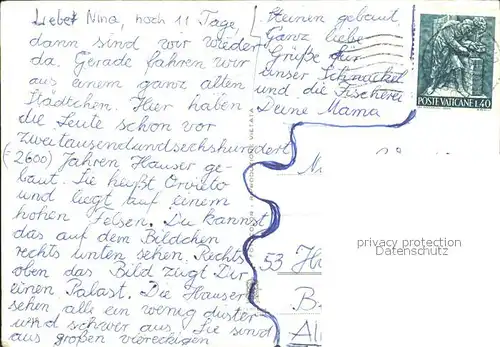 Liebe Nina, noch 11 Tage,
dann sind wir wieder
da. Gerade fahren wir
aus einem ganz alten
Städtchen. Hier haben
die Leute schon vor
zweitausendundsechshundert
(2600) Jahren Hauser ge-
baut. Sie heißt Orvieto
und liegt auf einem
hohen Felsen. Du kannst
das auf dem Bildchen
rechts unten sehen. Rechts
oben das Bild zeigt Dir
einen Palast. Die Hauser
sehen alle ein wenig duster
und schwer aus. Sie sind
aus großen viereckigen
Steinen gebaut.
Ganz liebe
Grüße für
unser Schnuckel
und die Fischerei
Deine Mama
POSTE VATICANE L.40
53
privacy protection
Datenschutz